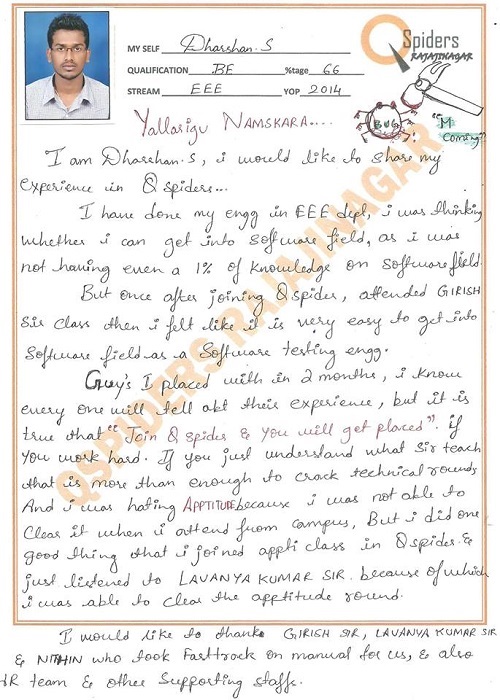 Spiders
RAJAJINAGAR
MY SELF Dharshan.S
QUALIFICATION BE %tage 66
STREAM EEE YOP 2014
Yallarigu NAMSKARA....
BUG
"I'M
Coming"
I am Dharshan.S, i would like to share my
experience in Qspiders...
I have done my engg in EEE dept, i was thinking
whether i can get into software field, as i was
not having even a 1% of knowledge on software field
But once after joining Qspider, attended GIRISH
Sir class then i felt like it is very easy to get into
Software field as a Software testing engg.
Guy's I placed with in 2 months, i know
every one will tell abt their experience, but it is
true that "Join Qspider & You will get placed". if
You work hard. If you just understand what Sir teach
that is more than enough to crack technical rounds
And i was hating APPTITUDE because i was not able to
Clear it when i attend from campus, But i did one
good thing that i joined appti class in Qspider &
just listened to LAVANYA KUMAR SIR. because of which
i was able to clear the apptitude round.
I would like to thank GIRISH SIR, LAVANYA KUMAR SIR
& NITHIN who took Fasttrack on manual for us, & also
HR team & other Supporting staff.
QSPIDERS RAJAJINAGAR